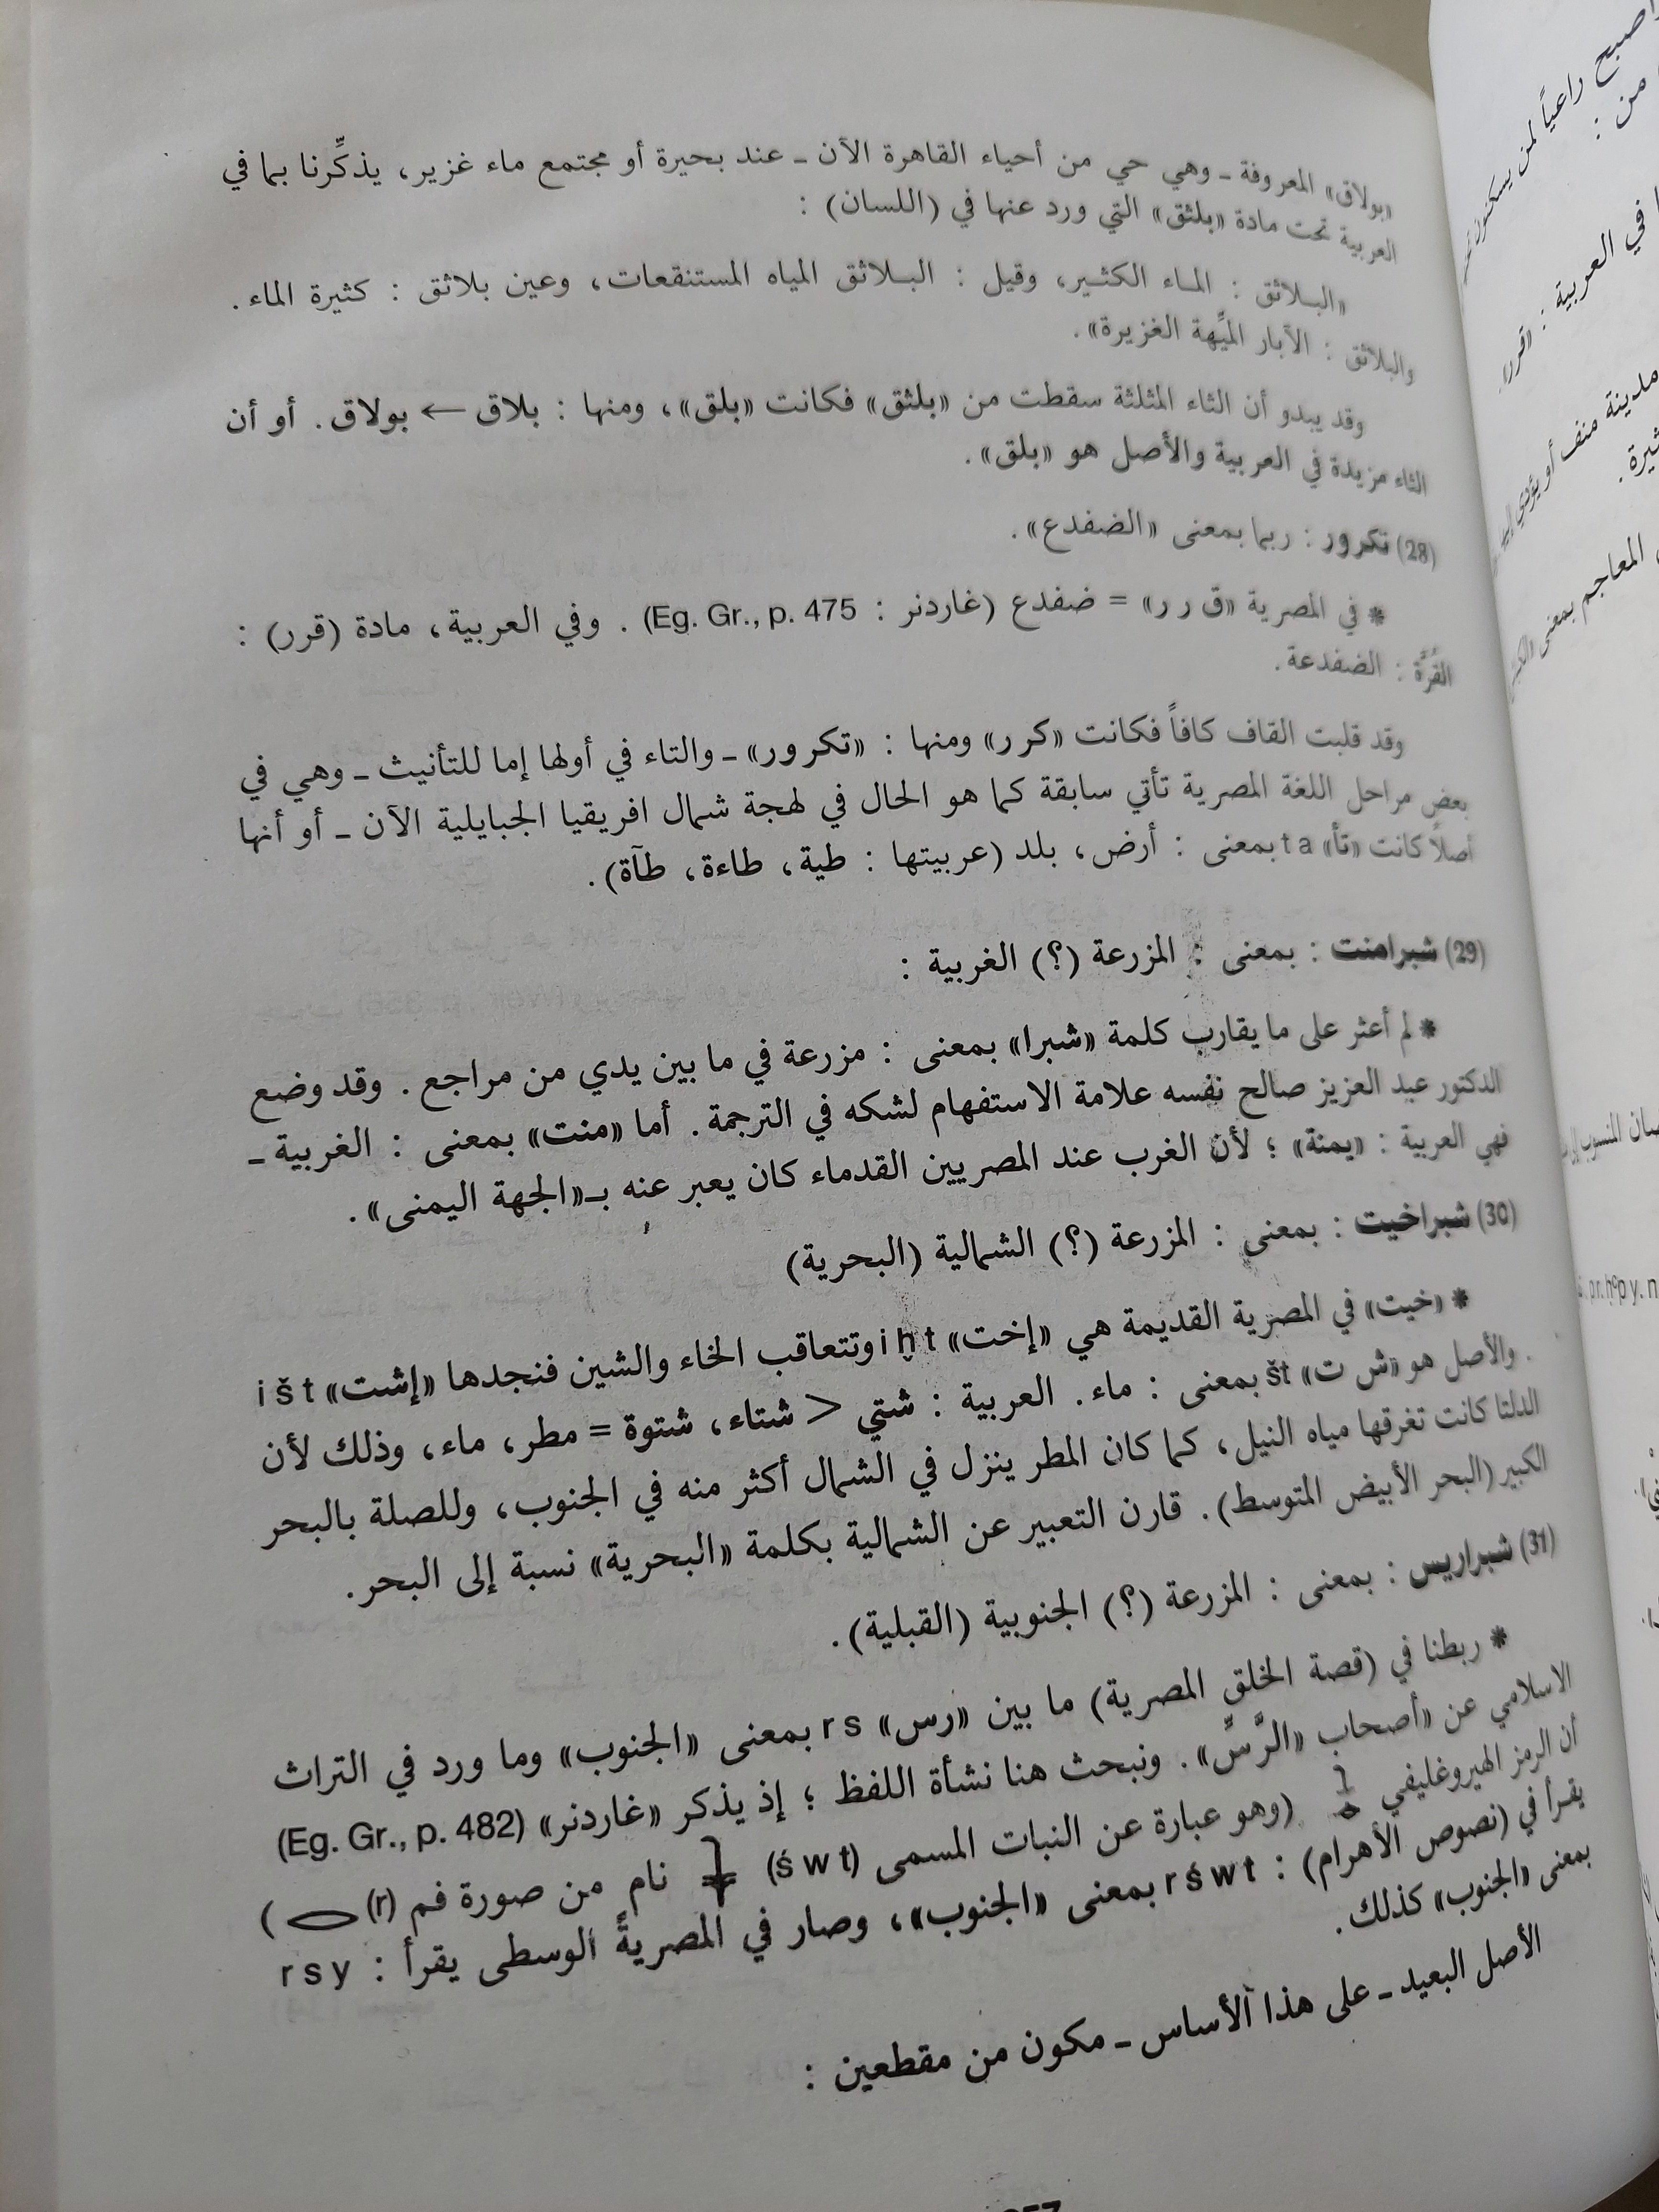 «بولاق» المعروفة ـ وهي حي من أحياء القاهرة الآن ـ عند بحيرة أو مجتمع ماء غزير، يذكِّرنا بما في
العربية تحت مادة «بلثق» التي ورد عنها في (اللسان) :
«البـلاثق : المـاء الكثـير، وقيل : البـلاثق المياه المستنقعات، وعين بلاثق : كثيرة الماء.
والبلاثق : الآبار الميِّهة الغزيرة».
وقد يبدو أن الثاء المثلثة سقطت من «بلثق» فكانت «بلق»، ومنها : بلاق ← بولاق. أو أن
الثاء مزيدة في العربية والأصل هو «بلق».
(28) تكرور : ربما بمعنى «الضفدع».
* في المصرية «ق ر ر» = ضفدع (غاردنر : Eg. Gr., p. 475) . وفي العربية، مادة (قرر) :
القُرَّة : الضفدعة.
وقد قلبت القاف كافاً فكانت «كرر» ومنها : «تكرور» ـ والتاء في أولها إما للتأنيث ـ وهي في
بعض مراحل اللغة المصرية تأتي سابقة كما هو الحال في لهجة شمال افريقيا الجبايلية الآن ـ أو أنها
أصلاً كانت «تأ» ta بمعنى : أرض، بلد (عربيتها : طية، طاءة، طآة).
(29) شبرامنت : بمعنى : المزرعة (؟) الغربية :
* لم أعثر على ما يقارب كلمة «شبرا» بمعنى : مزرعة في ما بين يدي من مراجع . وقد وضع
الدكتور عبد العزيز صالح نفسه علامة الاستفهام لشكه في الترجمة. أما «منت» بمعنى : الغربية ـ
فهي العربية : «يمنة» ؛ لأن الغرب عند المصريين القدماء كان يعبر عنه بـ«الجهة اليمنى».
(30) شبراخيت : بمعنى : المزرعة (؟) الشمالية (البحرية)
* «خيت» في المصرية القديمة هي «إخت» iḫt وتتعاقب الخاء والشين فنجدها «إشت» išt
. والأصل هو «ش ت» št بمعنى : ماء. العربية : شتي > شتاء، شتوة = مطر، ماء، وذلك لأن
الدلتا كانت تغرقها مياه النيل، كما كان المطر ينزل في الشمال أكثر منه في الجنوب، وللصلة بالبحر
الكبير (البحر الأبيض المتوسط). قارن التعبير عن الشمالية بكلمة «البحرية» نسبة إلى البحر.
(31) شبراريس : بمعنى : المزرعة (؟) الجنوبية (القبلية).
* ربطنا في (قصة الخلق المصرية) ما بين «رس» rs بمعنى «الجنوب» وما ورد في التراث
الاسلامي عن «أصحاب «الرَّسِّ». ونبحث هنا نشأة اللفظ ؛ إذ يذكر «غاردنر» (Eg. Gr., p. 482)
أن الرمز الهيروغليفي (وهو عبارة عن النبات المسمى (śwt) نام من صورة فم (r) )
يقرأ في (نصوص الأهرام) : rśwt بمعنى «الجنوب»، وصار في المصرية الوسطى يقرأ : rsy
بمعنى «الجنوب» كذلك.
الأصل البعيد ـ على هذا الأساس ـ مكون من مقطعين :